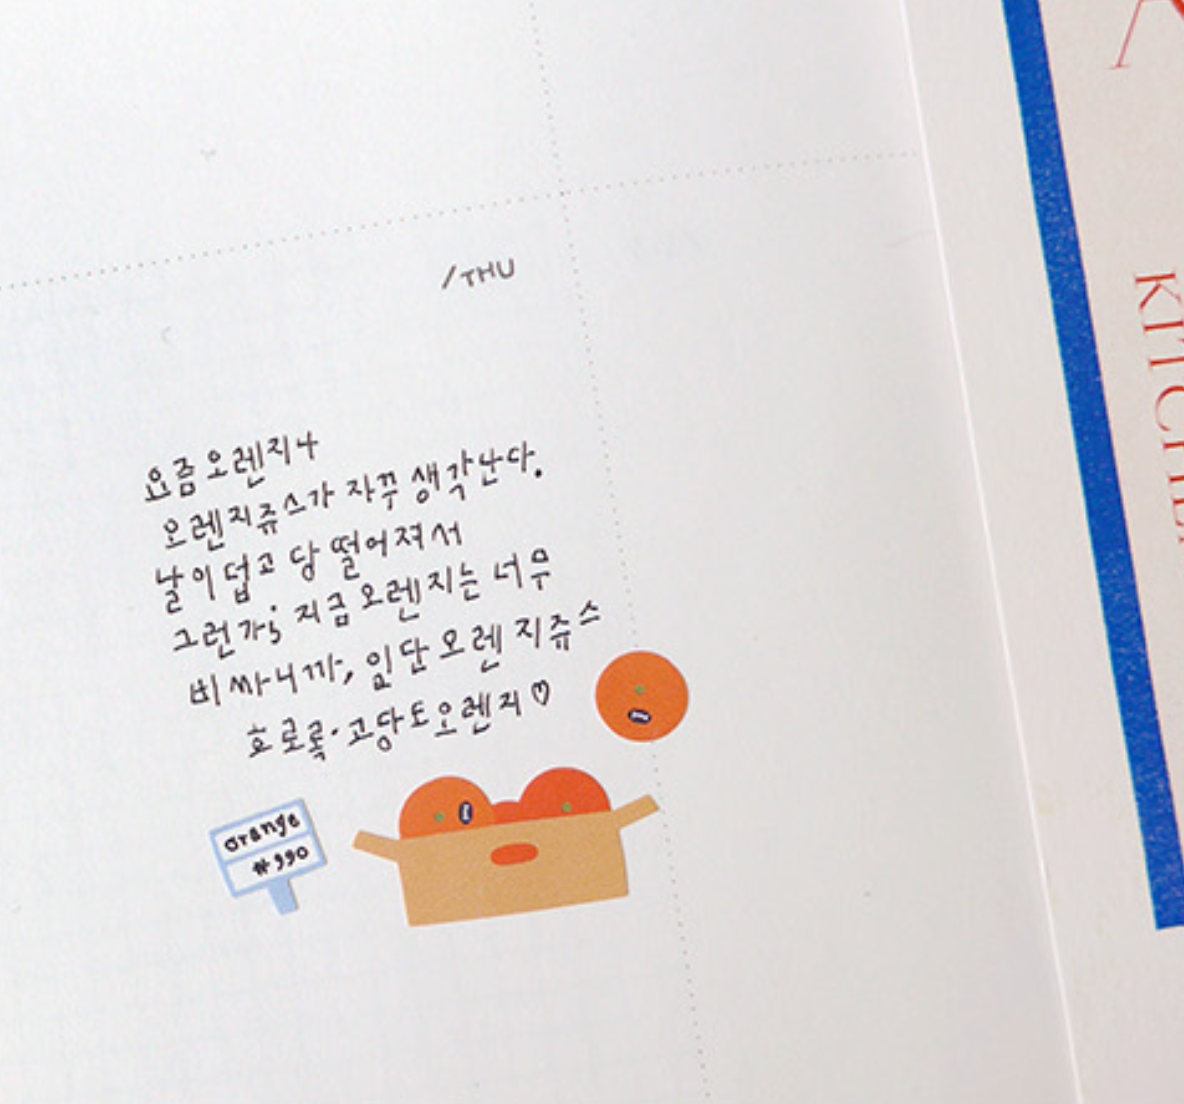 /THU
요즘 오렌지나
오렌지쥬스가 자꾸 생각난다.
날이 덥고 당 떨어져서
그런가; 지금 오렌지는 너무
비싸니까, 일단 오렌지쥬스
호로록. 고당도오렌지♡
orange
₩990
KITCHE